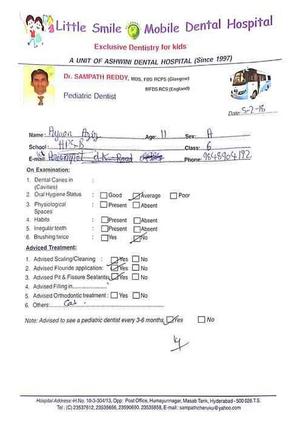 Little Smile Mobile Dental Hospital
Exclusive Dentistry for kids
A UNIT OF ASHWINI DENTAL HOSPITAL (Since 1997)
Dr. SAMPATH REDDY, MDS, FDS RCPS (Glasgow)
MFDS RCS (England)
Pediatric Dentist
Date: 5-2-18
Name: Age: 11 Sex:
School: HPS-B Class: 6
E-mail: Road Phone:
On Examination:
1. Dental Caries in : (Cavities)
2. Oral Hygiene Status : Good Average Poor
3. Physiological Spaces : Present Absent
4. Habits : Present Absent
5. Irregular teeth : Present Absent
6. Brushing twice : Yes No
Adviced Treatment:
1. Advised Scaling/Cleaning : Yes No
2. Advised Flouride application: Yes No
3. Advised Pit & Fissure Sealants: Yes No
4. Advised Filling in
5. Advised Orthodontic treatment : Yes No
6. Others:
Note: Advised to see a pediatric dentist every 3-6 months, Yes No
Hospital Address: H.No. 10-3-304/13, Opp: Post Office, Humayunnagar, Masab Tank, Hyderabad - 500 028 T.S.
Tel : (C) 23537612, 23535656, 23590690, 23535858, E-mail : sampathcheruku@yahoo.com